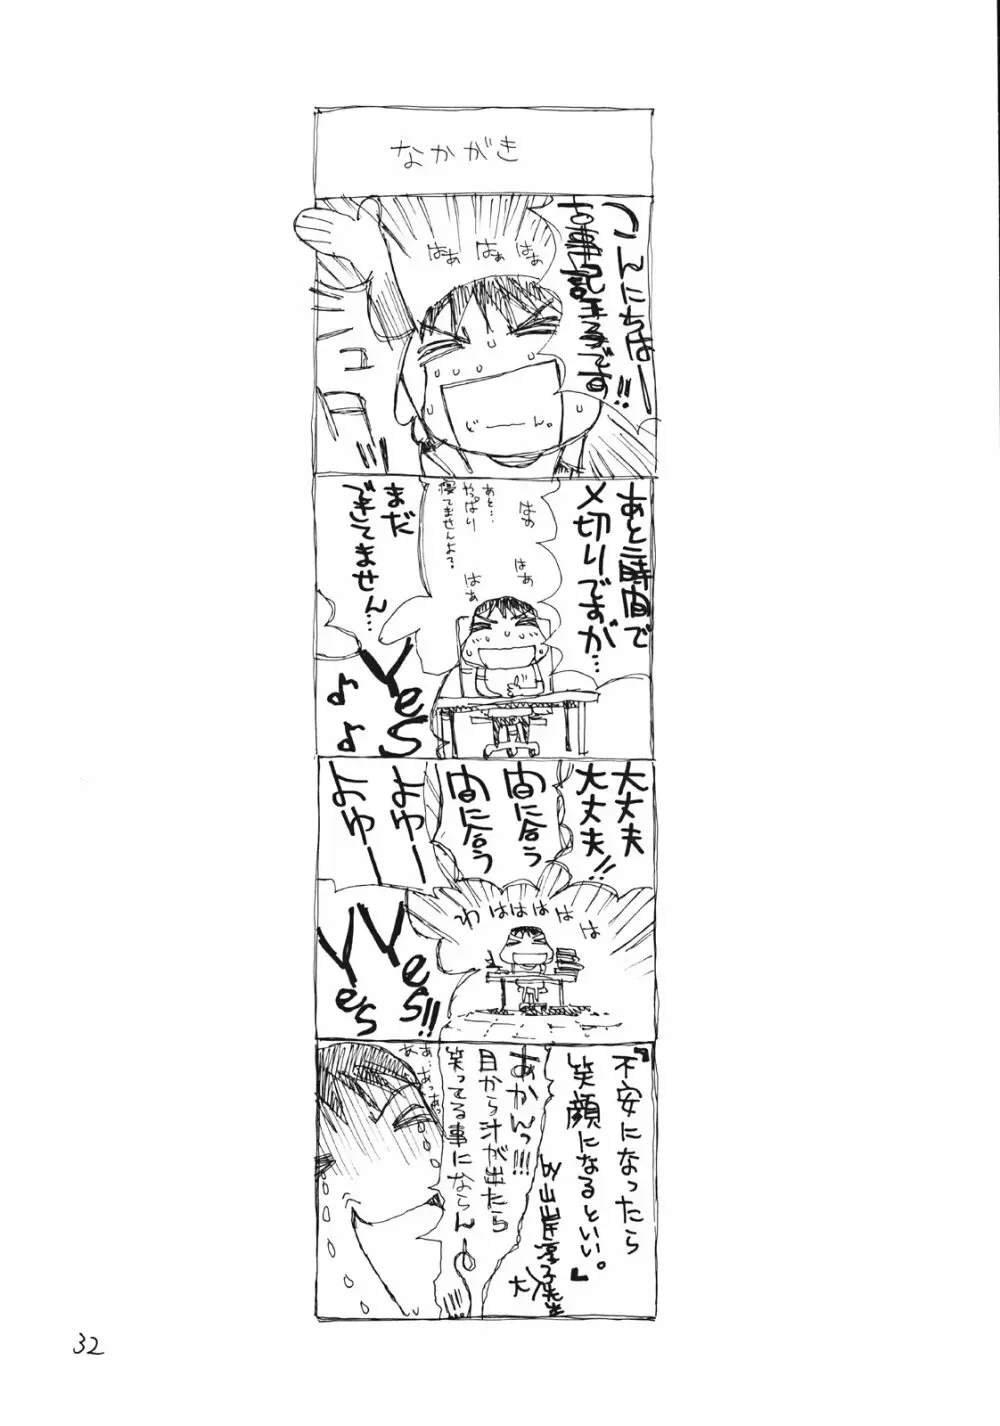 なかがき
こんにちはー!!
古事記王子です
はぁ
はぁ
はぁ
どーーん。
あと二時間で
〆切りですが…
はぁ
はぁ
はぁ
あと…
やっぱり
寝てませんよ?
まだ
できてません…
Yes
♪♪
大丈夫
大丈夫!!
間に合う
間に合う
よゆー
よゆー
わはははははは
Yes!!
Yes
『不安になったら
笑顔になるといい。』
by山岸凉子先生
あかんっ!!!
目から汁が出たら
笑ってる事にならんー
あ…あっあっ
あ
32